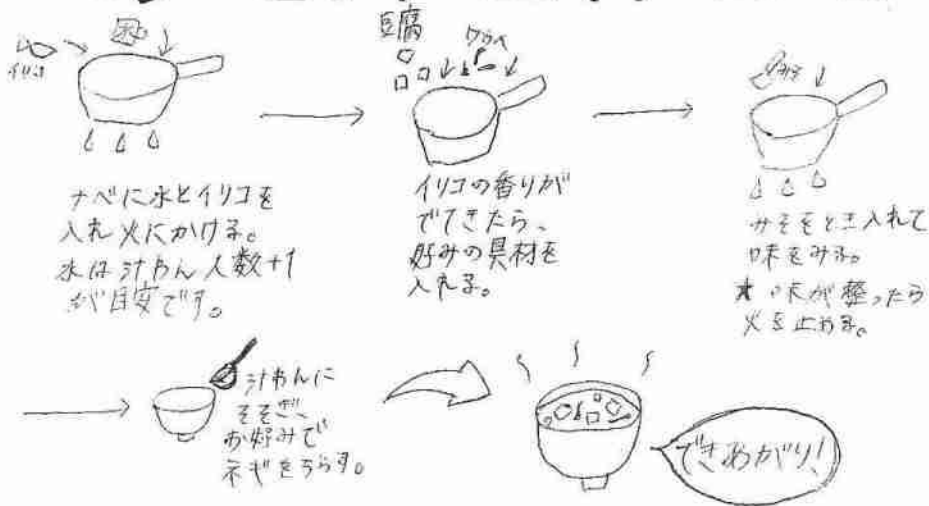 イリコ
豆腐
ワカメ
みそ
ナベに水とイリコを
入れ火にかける。
水は汁わん人数+1
が目安です。
イリコの香りが
でてきたら、
好みの具材を
入れる。
みそをとき入れて
味をみる。
★味が整ったら
火を止める。
汁わんに
そそぎ、
お好みで
ネギをちらす。
できあがり!